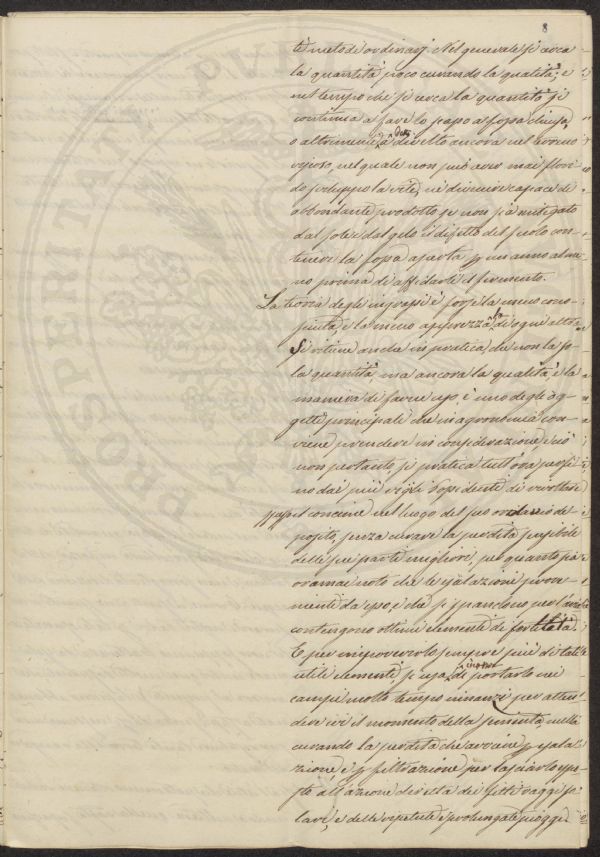 8
ti metodi ordinarj. Nel generale si cerca
la quantità poco curando la qualità; e
nel tempo che si cerca la quantità si
continua a fare lo scasso a fossa chiusa,
o altrimenti a diretto ancora nel terreno
nel quale non può aver mai flori-
do sviluppo la vite, nè divenire capace di
abbondante prodotto se non sia mitigato
dal sole e dal gelo il difetto del suolo con
tenere la fossa aperta p un anno alme-
no prima di affidarle il sermento.
La teoria degli ingrassi è forse la meno cono-
sciuta, e la meno apprezzata di ogni altra
Si ritiene anche in pratica che non la so-
la quantità, ma ancora la qualità, e la
maniera di farne uso, è uno degli og-
getti principali che in agronomia con-
viene prendere in considerazione, e ciò
non pertanto, si pratica tutt'ora perfi-
no dai più vigili Possidenti di
spesso il concime nel luogo del suo ordinario de-
posito, senza curare la perdita possibile
delle sue parti migliori, per quanto sia
oramai noto che le esalazioni prove-
nienti da esso, e che si spandono per l'aria
contengono ottimi elementi di fertilità
E per impoverirlo sempre più di tali
utili elementi, si usa di portarlo nei
campi molto tempo innanzi per atten-
dere ivi il momento della sementa, nulla
curando la perdita che avviene p esala-
zione, e p filtrazione per lasciarlo espo-
sto all'azione diretta dei fitti raggi so-
lari, e delle ripetute e prolungate pioggie